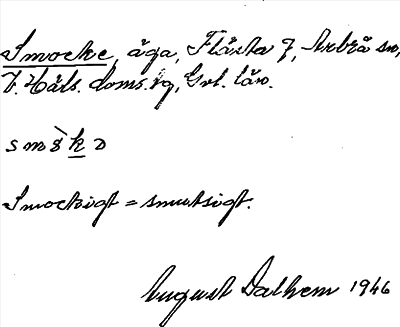 Smocke, äga, Flästa 7, Arbrå sn,
V. Häls. doms.sg, Gvl. län.
smòkɒ
Smockigt = smutsigt.
August Dalhem 1946